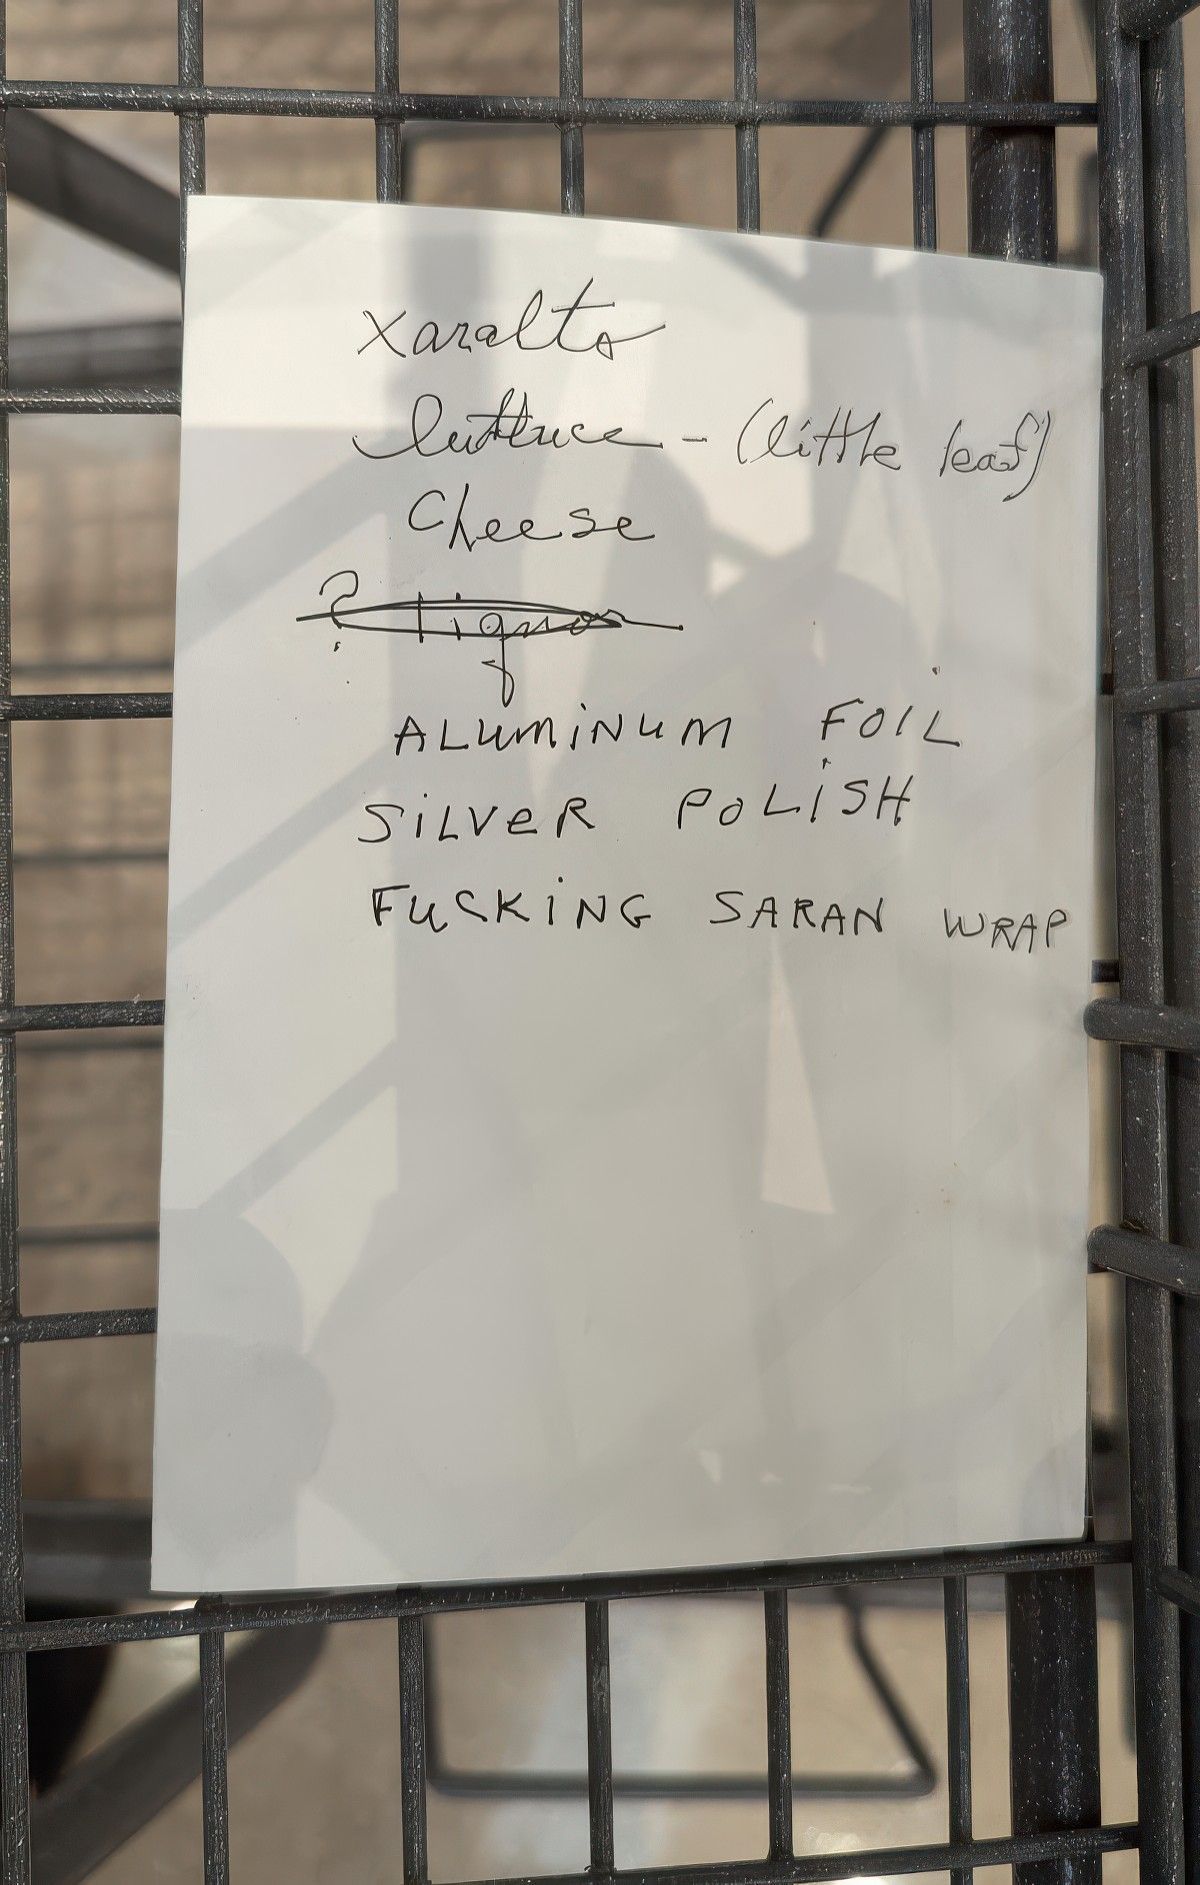 Xaralto
lettuce - (little leaf)
Cheese
? liquor
ALUMINUM FOIL
SILVER POLISH
FUCKING SARAN WRAP